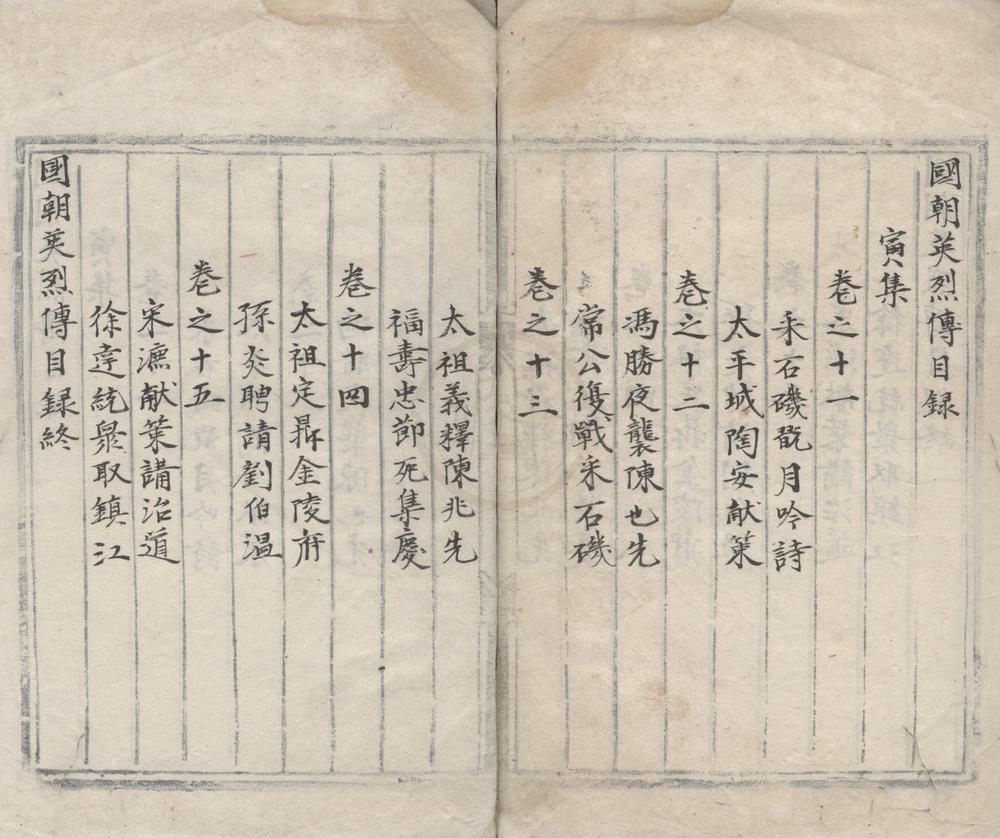 國朝英烈傳目録
寅集
卷之十一
采石磯翫月吟詩
太平城陶安献策
卷之十二
馮勝夜襲陳也先
常公復戰采石磯
卷之十三
太祖義釋陳兆先
福壽忠節死集慶
卷之十四
太祖定鼎金陵府
孫炎聘請劉伯温
卷之十五
宋濂献策講治道
徐達統衆取鎮江
國朝英烈傳目録終